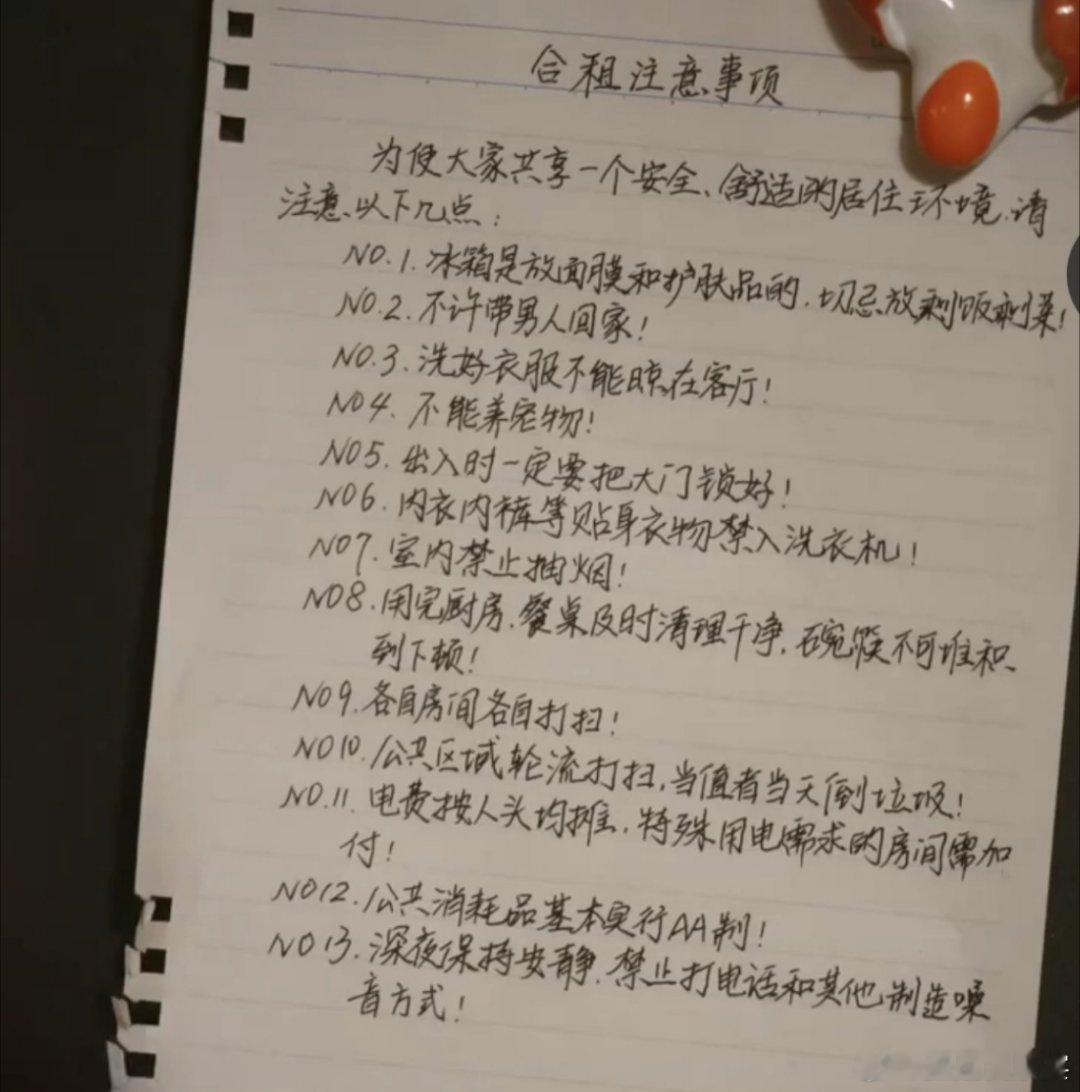 合租注意事项
为使大家共享一个安全、舒适的居住环境,请
注意以下几点:
NO.1.冰箱是放面膜和护肤品的,切忌放剩饭剩菜!
NO.2.不许带男人回家!
NO.3.洗好衣服不能晾在客厅!
NO4.不能养宠物!
NO5.出入时一定要把大门锁好!
NO6.内衣内裤等贴身衣物禁入洗衣机!
NO7.室内禁止抽烟!
NO8.用完厨房、餐桌及时清理干净,碗筷不可堆积
到下顿!
NO9.各自房间各自打扫!
NO10.公共区域轮流打扫,当值者当天倒垃圾!
NO.11.电费按人头均摊,特殊用电需求的房间需加
付!
NO12.公共消耗品基本实行AA制!
NO13.深夜保持安静,禁止打电话和其他制造噪
音方式!